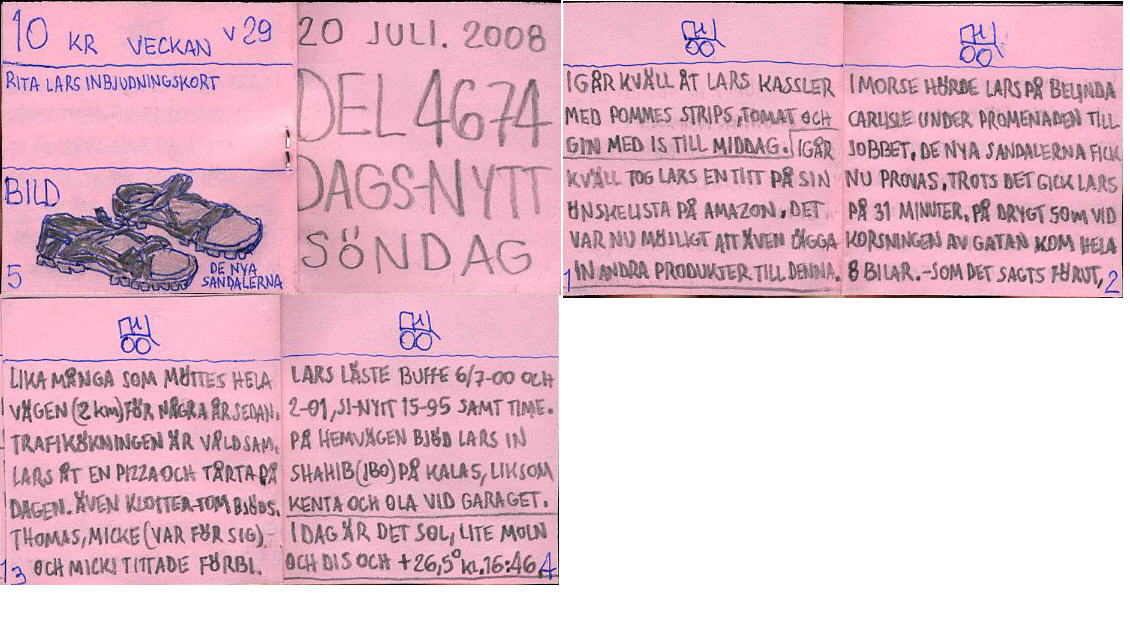 10 KR VECKAN V 29
RITA LARS INBJUDNINGSKORT
BILD
5
DE NYA
SANDALERNA
20 JULI. 2008
DEL 4674
DAGS-NYTT
SÖNDAG
IGÅR KVÄLL ÅT LARS KASSLER
MED POMMES STRIPS, TOMAT OCH
GIN MED IS TILL MIDDAG. IGÅR
KVÄLL TOG LARS EN TITT PÅ SIN
ÖNSKELISTA PÅ AMAZON, DET
VAR NU MÖJLIGT ATT ÄVEN LÄGGA
IN ANDRA PRODUKTER TILL DENNA.
1
I MORSE HÖRDE LARS PÅ BELINDA
CARLISLE UNDER PROMENADEN TILL
JOBBET, DE NYA SANDALERNA FICK
NU PROVAS, TROTS DET GICK LARS
PÅ 31 MINUTER. PÅ DRYGT 50M VID
KORSNINGEN AV GATAN KOM HELA
8 BILAR. -SOM DET SAGTS FÖRUT,
2
LIKA MÅNGA SOM MÖTTES HELA
VÄGEN (2 km) FÖR NÅGRA ÅR SEDAN.
TRAFIKÖKNINGEN ÄR VÅLDSAM.
LARS ÅT EN PIZZA OCH TÅRTA PÅ
DAGEN. ÄVEN KLOTTER-TOM BJÖDS.
THOMAS, MICKE (VAR FÖR SIG)
OCH MICKI TITTADE FÖRBI.
3
LARS LÄSTE BUFFE 6/7-00 OCH
2-01, SJ-NYTT 15-95 SAMT TIME.
PÅ HEMVÄGEN BJÖD LARS IN
SHAHIB (JBO) PÅ KALAS, LIKSOM
KENTA OCH OLA VID GARAGET.
I DAG ÄR DET SOL, LITE MOLN
OCH DIS OCH +26,5° KL. 16:46
4